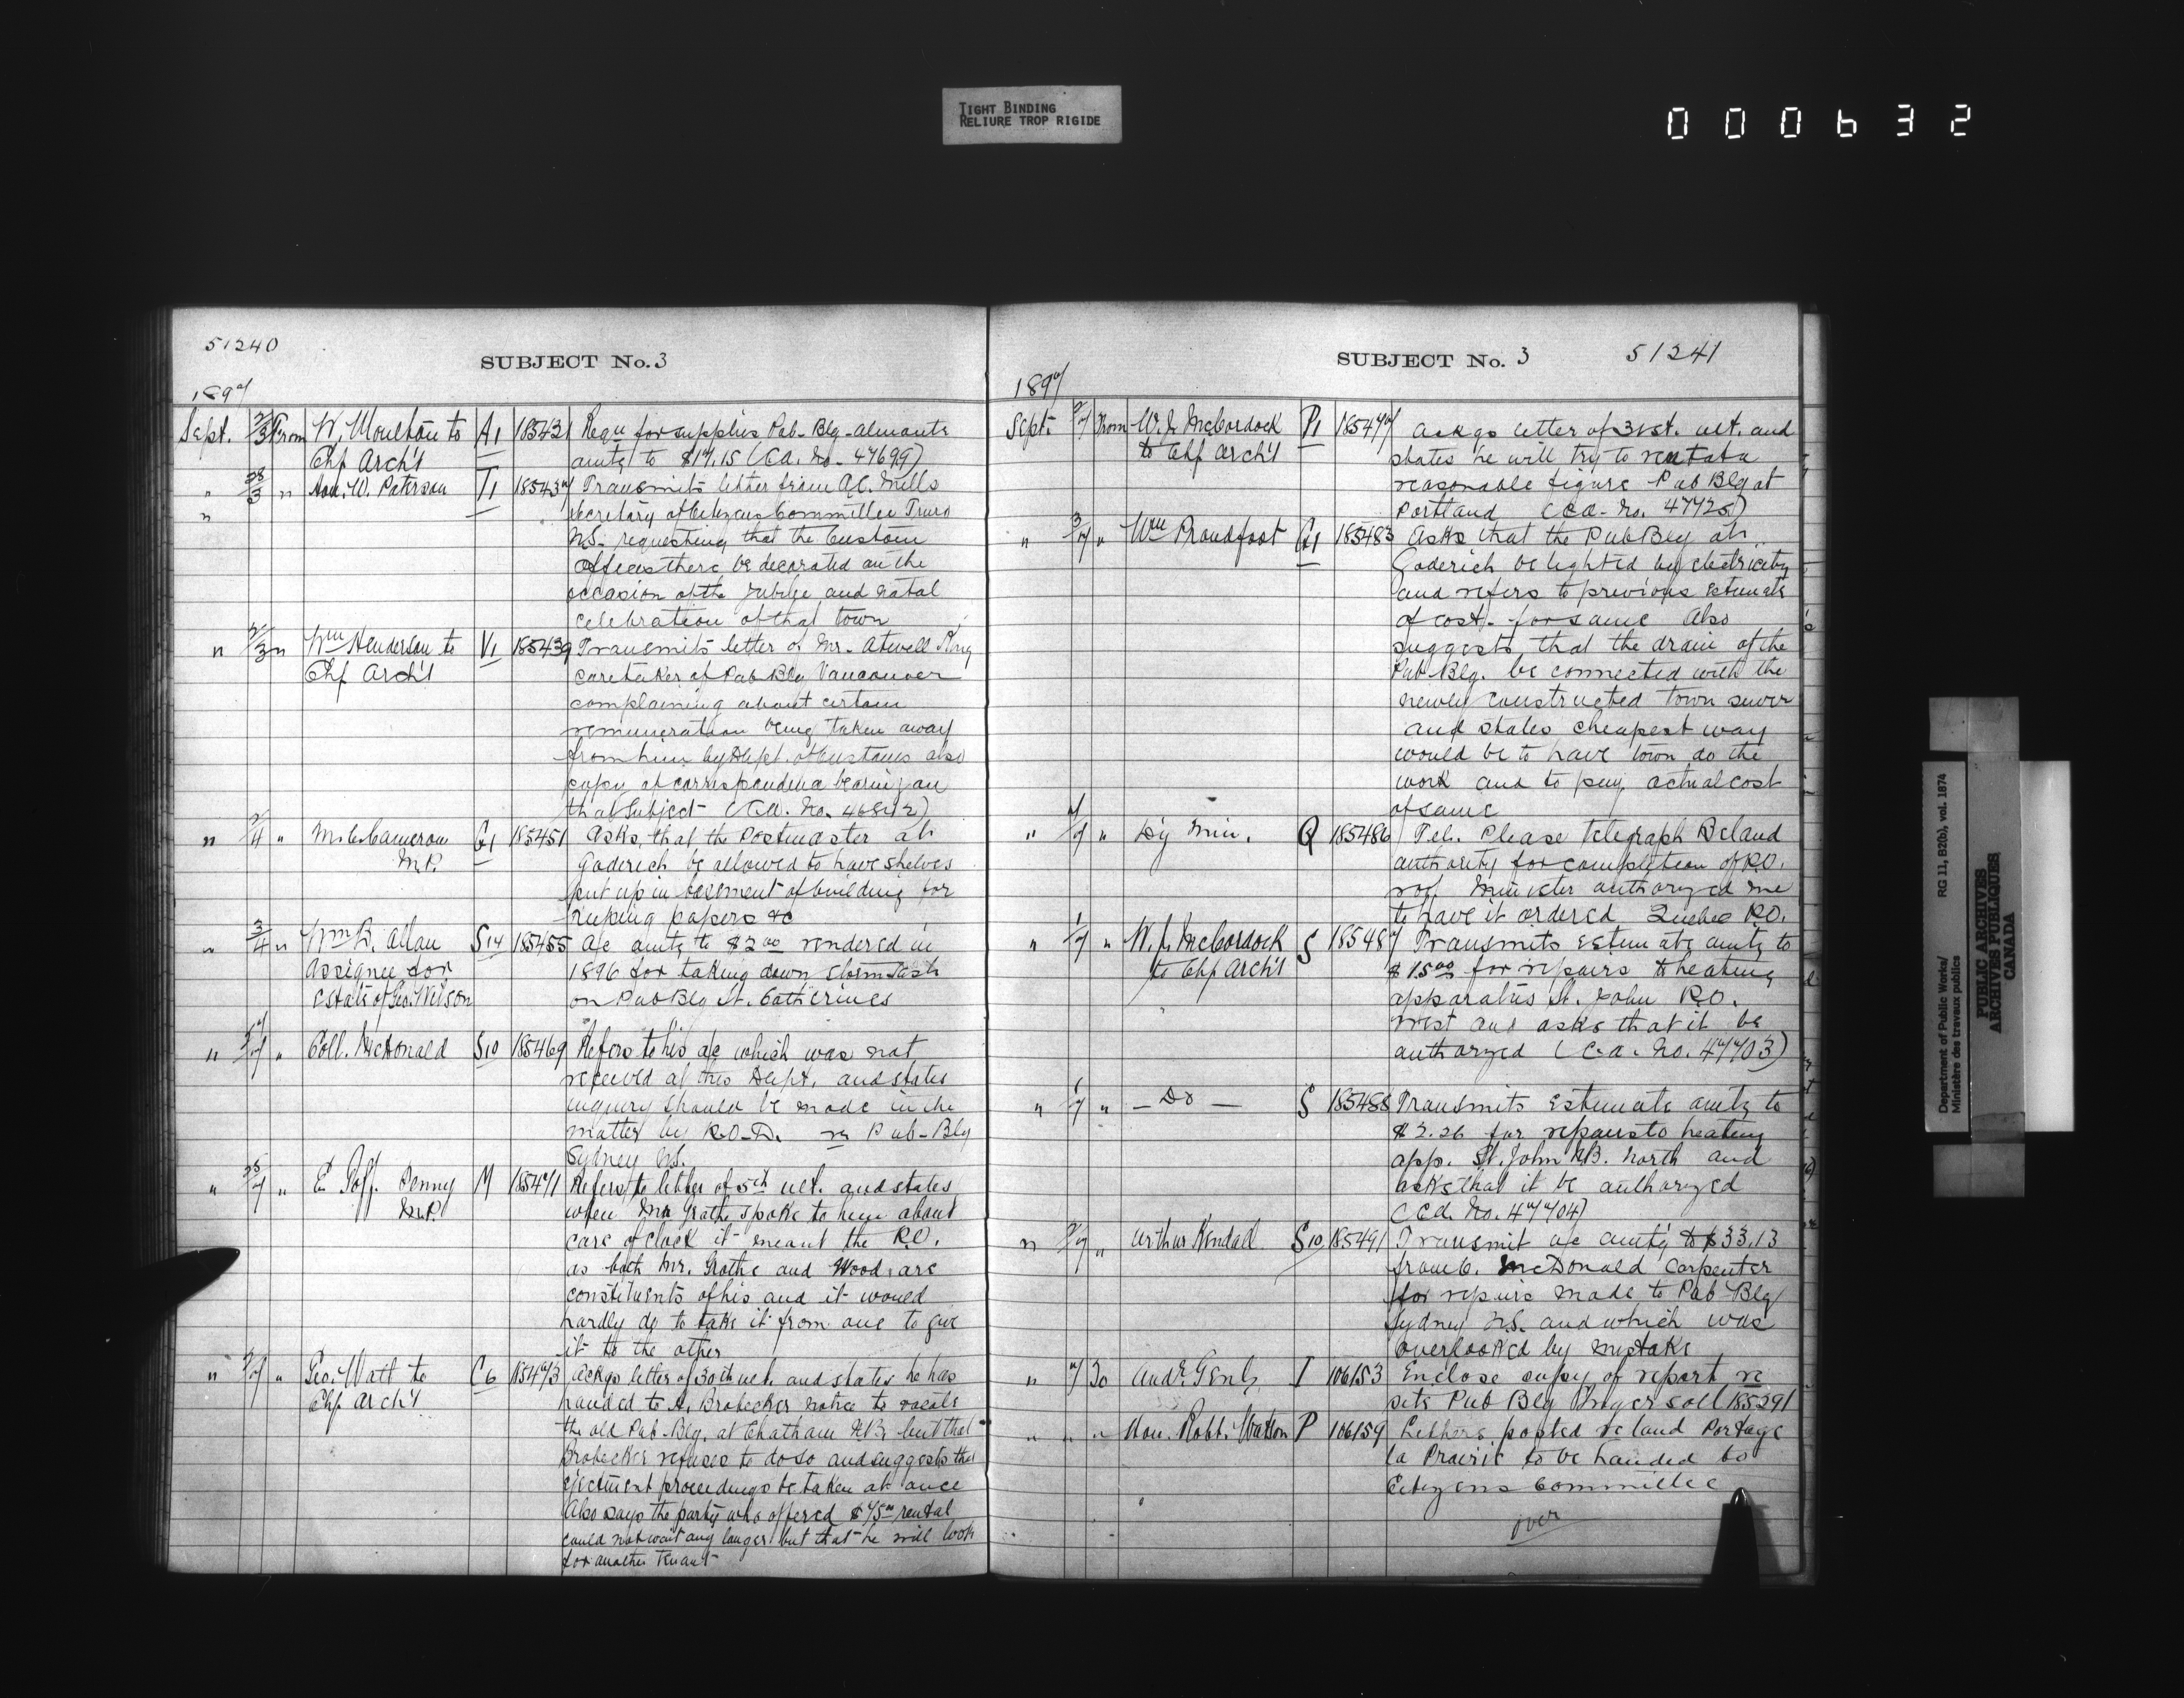 TIGHT BINDING
RELIURE TROP RIGIDE
000632
51240
SUBJECT No. 3
1897
Sept. 2/3 From W. Moulton to A1 185431 Requ for supplies Pub- Blg- Almonte
Chf Arch't amtg to $17.15 (C.A. No. 47699)
" 28/3 " Hon. W. Paterson T1 185437 Transmits letter from A.C. Mills
" secretary of Citizens Committee Truro
N.S. requesting that the Custom
Offices there be decorated on the
occasion of the Jubilee and Natal
celebration of that town
" 2/3 " Wm Henderson to V1 185439 Transmits letter of Mr. Atwell King
Chf Arch't caretaker of Pub Blg Vancouver
complaining about certain
remuneration being taken away
from him by Dept. of Customs also
copy of correspondence bearing on
that subject (C.A. No. 46812)
" 2/4 " M.C. Cameron G1 185451 Asks that the Postmaster at
M.P. Goderich be allowed to have shelves
put up in basement of building for
keeping papers &c
" 3/4 " Wm B. Allan S14 185455 a/c amtg to $2.00 rendered in
Assignee for 1896 for taking down storm sash
estate of Geo. Wilson on Pub Blg St. Catherines
" " Coll. McDonald S10 185469 Refers to his a/c which was not
received at this Dept. and states
inquiry should be made in the
matter by P.O.D. re Pub-Blg
Sydney N.S.
" " E Goff. Penny M 185471 Refers to letter of 5th ult. and states
M.P. when Mr Grothe spoke to him about
care of clock it meant the P.O.
as both Mr. Grothe and Wood are
constituents of his and it would
hardly do to take it from one to give
it to the other
" 2/7 " Geo. Watt to C6 185473 Ackgs letter of 30th ult. and states he has
Chf Arch't handed to A. Brobecker notice to vacate
the old Pub-Blg. at Chatham N.B. but that
Brobecker refuses to do so and suggests that
ejectment proceedings be taken at once
Also says the party who offered $75.00 rental
could not wait any longer but that he will look
for another tenant
SUBJECT No. 3 51241
1897
Sept. 2/7 From W. J. McCordock P1 185474 Ackgs letter of 31st. ult. and
to Chf Arch't states he will try to rent at a
reasonable figure Pub Blg at
Portland (C.A. No. 47725)
" 3/7 " Wm Proudfoot G1 185483 Asks that the Pub Blg at
Goderich be lighted by electricity
and refers to previous estimate
of cost for same Also
suggests that the drain of the
Pub-Blg. be connected with the
newly constructed town sewer
and states cheapest way
would be to have town do the
work and to pay actual cost
of same
" " Dy Min. Q 185486 Tel. Please telegraph Beland
authority for completion of P.O.
roof Minister authorized me
to have it ordered Quebec P.O.
" 1/7 " W. J. McCordock S 185487 Transmits estimate amtg to
to Chf Arch't $15.00 for repairs to heating
apparatus St. John P.O.
West and asks that it be
authorized (C.A. No. 47703)
" 1/7 " — Do — S 185488 Transmits estimate amtg to
$2.26 for repairs to heating
app. St. John N.B. North and
asks that it be authorized
(C.A. No. 47704)
" 2/7 " Arthur Kendall S10 185491 Transmit a/c amtg to $33.13
from C. McDonald carpenter
for repairs made to Pub-Blg
Sydney N.S. and which was
overlooked by mistake
" 7 To Audr. Genl. I 106153 Enclose copy of report re
site Pub Blg Ingersoll 185291
" " " Hon. Robt. Watson P 106159 Letters posted re land Portage
la Prairie to be handed to
Citizens Committee
over
Department of Public Works/ RG 11, B2(b), vol. 1874
Ministère des travaux publics
PUBLIC ARCHIVES
ARCHIVES PUBLIQUES
CANADA